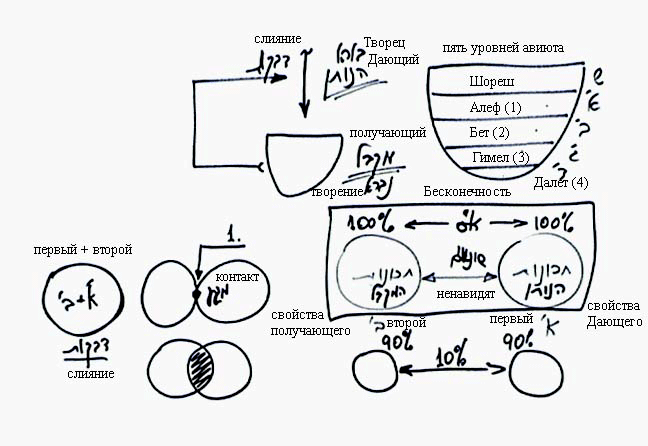 слияние
דבקות
Творец
Дающий
בורא
הנותן
получающий
מקבל
нברא
творение
пять уровней авиюта
Шореш
Алеф (1)
Бет (2)
Гимел (3)
Далет (4)
ש
א'
ב'
ג'
ד'
Бесконечность
100% אס 100%
תכונות
המקבל
ненавидят
תכונות
הנותן
свойства
получающего
ב' второй
первый א'
свойства
Дающего
90% 10% 90%
первый + второй
א+ב'
דבקות
слияние
1.
контакт
מגע